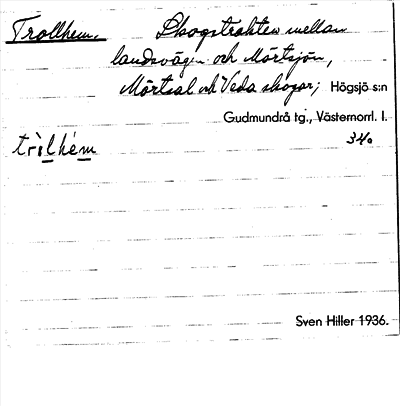 Trollhem, Skogstrakten mellan
landsvägen och Mörtsjön,
Mörtsal och Veda skogar; Högsjö s:n
Gudmundrå tg., Västernorrl. l.
34.
Sven Hiller 1936.